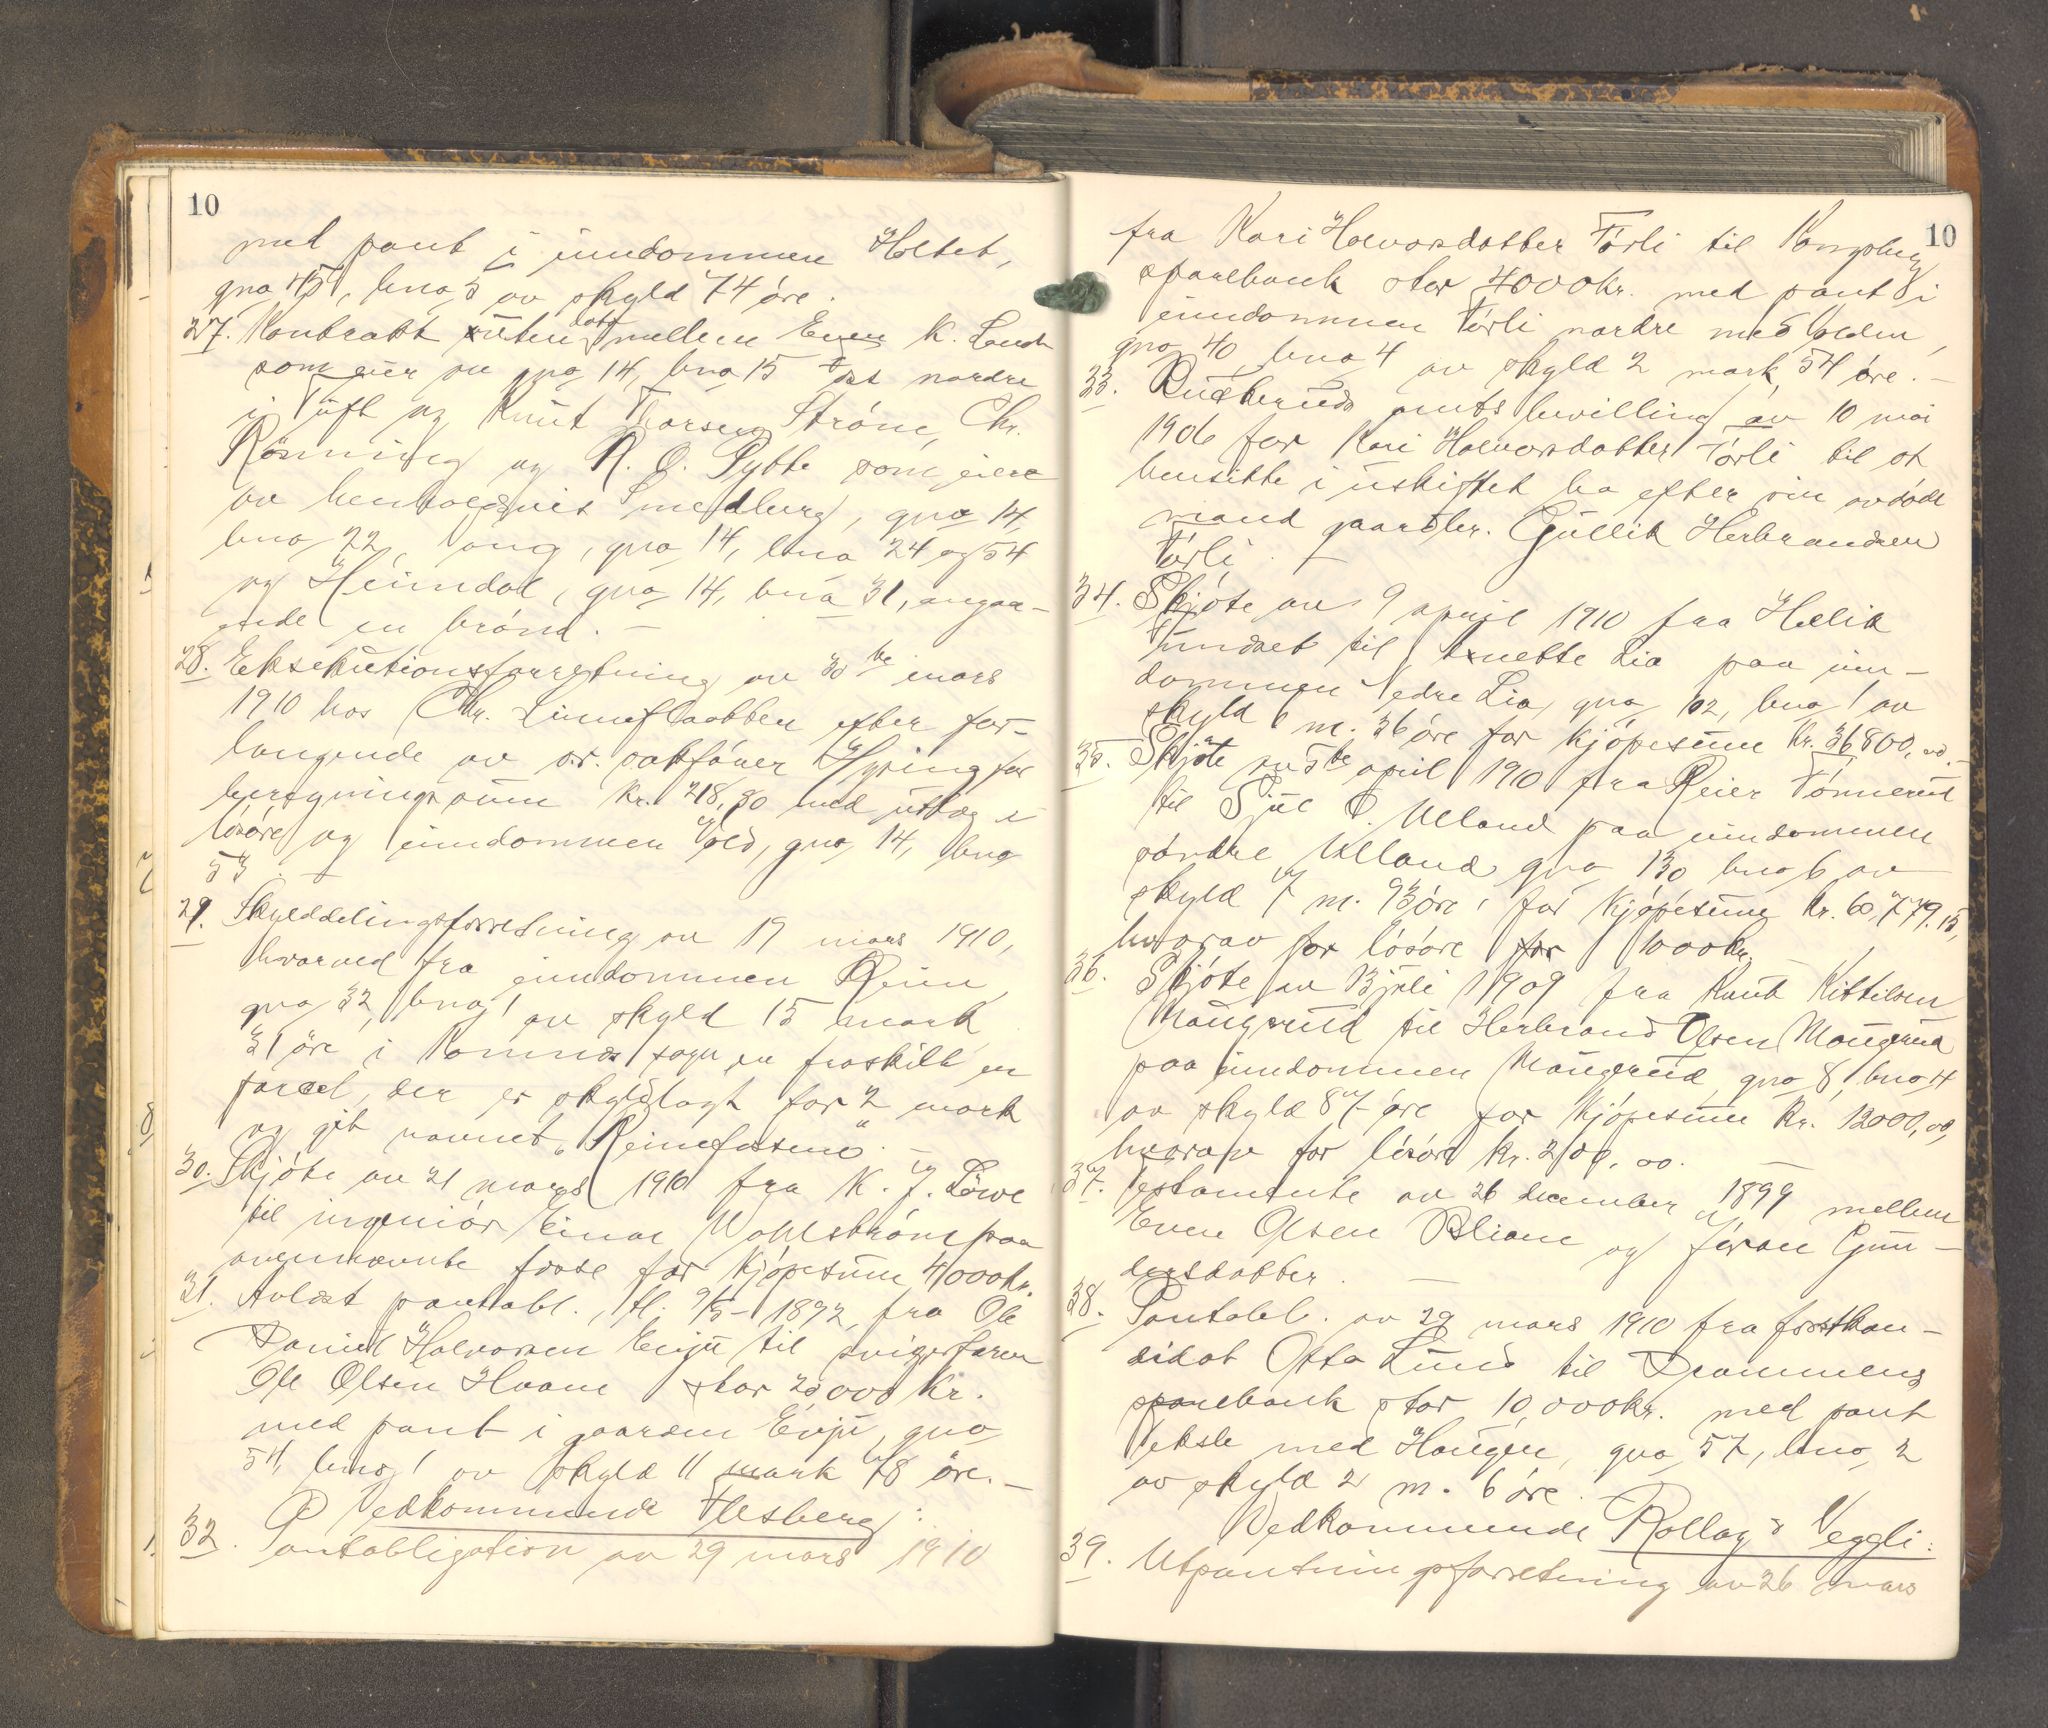 10
med pant i eiendommen Holtet,
gno 45, bno 5 av skyld 74 øre.
27. Kontrakt uten dato mellem Even K. Lande
som eier av gno 14, bno 15 nordre
Tuft og Knut Thorsen Strøm, Chr.
Rønning og R. O. Pytte som eiere
av henholdsvis Smedberg, gno 14
bno 22, gno 14, bno 24 og 54
og Heimdal, gno 14, bno 31, angaa-
ende en brønd. —
28. Eksekutionsforretning av 30te mars
1910 hos Chr. Linneflaatten efter for-
langende av o.r. sakfører Hyring for
beregningssum kr. 218,80 med utlæg i
løsøre og eiendommen Vold, gno 14, bno
53. —
29. Skylddelingsforretning av 17 mars 1910,
hvorved fra eiendommen Reim
gno 32, bno 1 av skyld 15 mark
31 øre i Komnes sogn er fraskilt en
parcel, der er skyldlagt for 2 mark
og git navnet „Reimefossene“. —
30. Skjøte av 21 mars 1910 fra K. J. Löwe
til ingeniør Einar Wahlstrøm paa
ovennævnte fosse for kjøpesum 4000 kr.
31. Avlæst pantobl., tl. 9/5-1892, fra Ole
Daniel Halvorsen Evju til svigerfaren
Ole Olsen Hvaale stor 20,000 kr.
med pant i gaarden Evju, gno
54, bno 1 av skyld 11 mark 78 øre. —
Vedkommende Flesberg:
32. Pantobligation av 29 mars 1910
10
fra Kari Halvorsdatter Tørli til Kongsberg
sparebank stor 4000 kr. med pant i
eiendommen Tørli nordre med
gno 40, bno 4 av skyld 2 mark 54 øre. —
33. Buskeruds amts bevilling av 10 mai
1906 for Kari Halvorsdatter Tørli til at
hensitte i uskiftet bo efter sin avdøde
mand gaardbr. Gullik Herbrandsen
Tørli. —
34. Skjøte av 9 april 1910 fra Hellik
til Anette Lia paa eien-
dommen Nedre Lia, gno 102, bno 1 av
skyld 6 m. 36 øre for kjøpesum kr. 36800,00. —
35. Skjøte av 5te april 1910 fra Reier Tønnerud
til Sjul O. Ulland paa eiendommen
søndre Ulland gno 130 bno 6 av
skyld 7 m. 93 øre for kjøpesum kr. 60,779.15,
hvorav for løsøre for 1000 kr.
36. Skjøte av 13 juli 1909 fra Knut Kittilsen
Maugerud til Herbrand Olsen Maugerud
paa eiendommen Maugerud gno 81 bno 4
av skyld 87 øre for kjøpesum kr. 12000,00,
hvorav for løsøre kr. 200,00. —
37. Testamente av 26 december 1899 mellem
Even Olsen Bliane og Jøran Gun-
dersdatter. —
38. Pantobl. av 29 mars 1910 fra forstkan-
didat Otto Lund til Drammens
sparebank stor 10,000 kr. med pant
Veksle med Haugen, gno 57, bno 2
av skyld 2 m. 6 øre.
Vedkommende Rollag & Veggli:
39. Utpantningsforretning av 26 mars